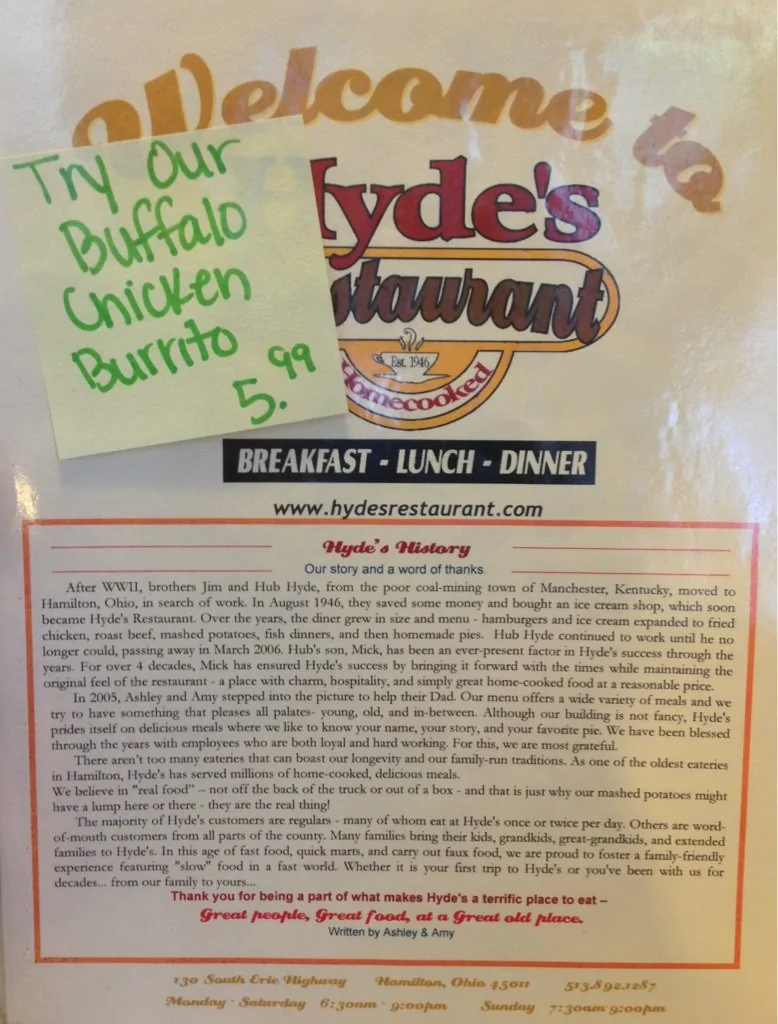 Welcome to
Try Our
Buffalo
Chicken
Burrito
5.99
Hyde's
staurant
Est. 1946
Homecooked
BREAKFAST - LUNCH - DINNER
www.hydesrestaurant.com
Hyde's History
Our story and a word of thanks.
After WWII, brothers Jim and Hub Hyde, from the poor coal-mining town of Manchester, Kentucky, moved to
Hamilton, Ohio, in search of work. In August 1946, they saved some money and bought an ice cream shop, which soon
became Hyde's Restaurant. Over the years, the diner grew in size and menu - hamburgers and ice cream expanded to fried
chicken, roast beef, mashed potatoes, fish dinners, and then homemade pies. Hub Hyde continued to work until he no
longer could, passing away in March 2006. Hub's son, Mick, has been an ever-present factor in Hyde's success through the
years. For over 4 decades, Mick has ensured Hyde's success by bringing it forward with the times while maintaining the
original feel of the restaurant - a place with charm, hospitality, and simply great home-cooked food at a reasonable price.
In 2005, Ashley and Amy stepped into the picture to help their Dad. Our menu offers a wide variety of meals and we
try to have something that pleases all palates- young, old, and in-between. Although our building is not fancy, Hyde's
prides itself on delicious meals where we like to know your name, your story, and your favorite pie. We have been blessed
through the years with employees who are both loyal and hard working. For this, we are most grateful.
There aren't too many eateries that can boast our longevity and our family-run traditions. As one of the oldest eateries
in Hamilton, Hyde's has served millions of home-cooked, delicious meals.
We believe in "real food" – not off the back of the truck or out of a box - and that is just why our mashed potatoes might
have a lump here or there - they are the real thing!
The majority of Hyde's customers are regulars - many of whom eat at Hyde's once or twice per day. Others are word-
of-mouth customers from all parts of the county. Many families bring their kids, grandkids, great-grandkids, and extended
families to Hyde's. In this age of fast food, quick marts, and carry out faux food, we are proud to foster a family-friendly
experience featuring "slow" food in a fast world. Whether it is your first trip to Hyde's or you've been with us for
decades... from our family to yours...
Thank you for being a part of what makes Hyde's a terrific place to eat –
Great people, Great food, at a Great old place.
Written by Ashley & Amy
130 South Erie Highway Hamilton, Ohio 45011 513.892.1287
Monday - Saturday 6:30am - 9:00pm Sunday 7:30am-9:00pm